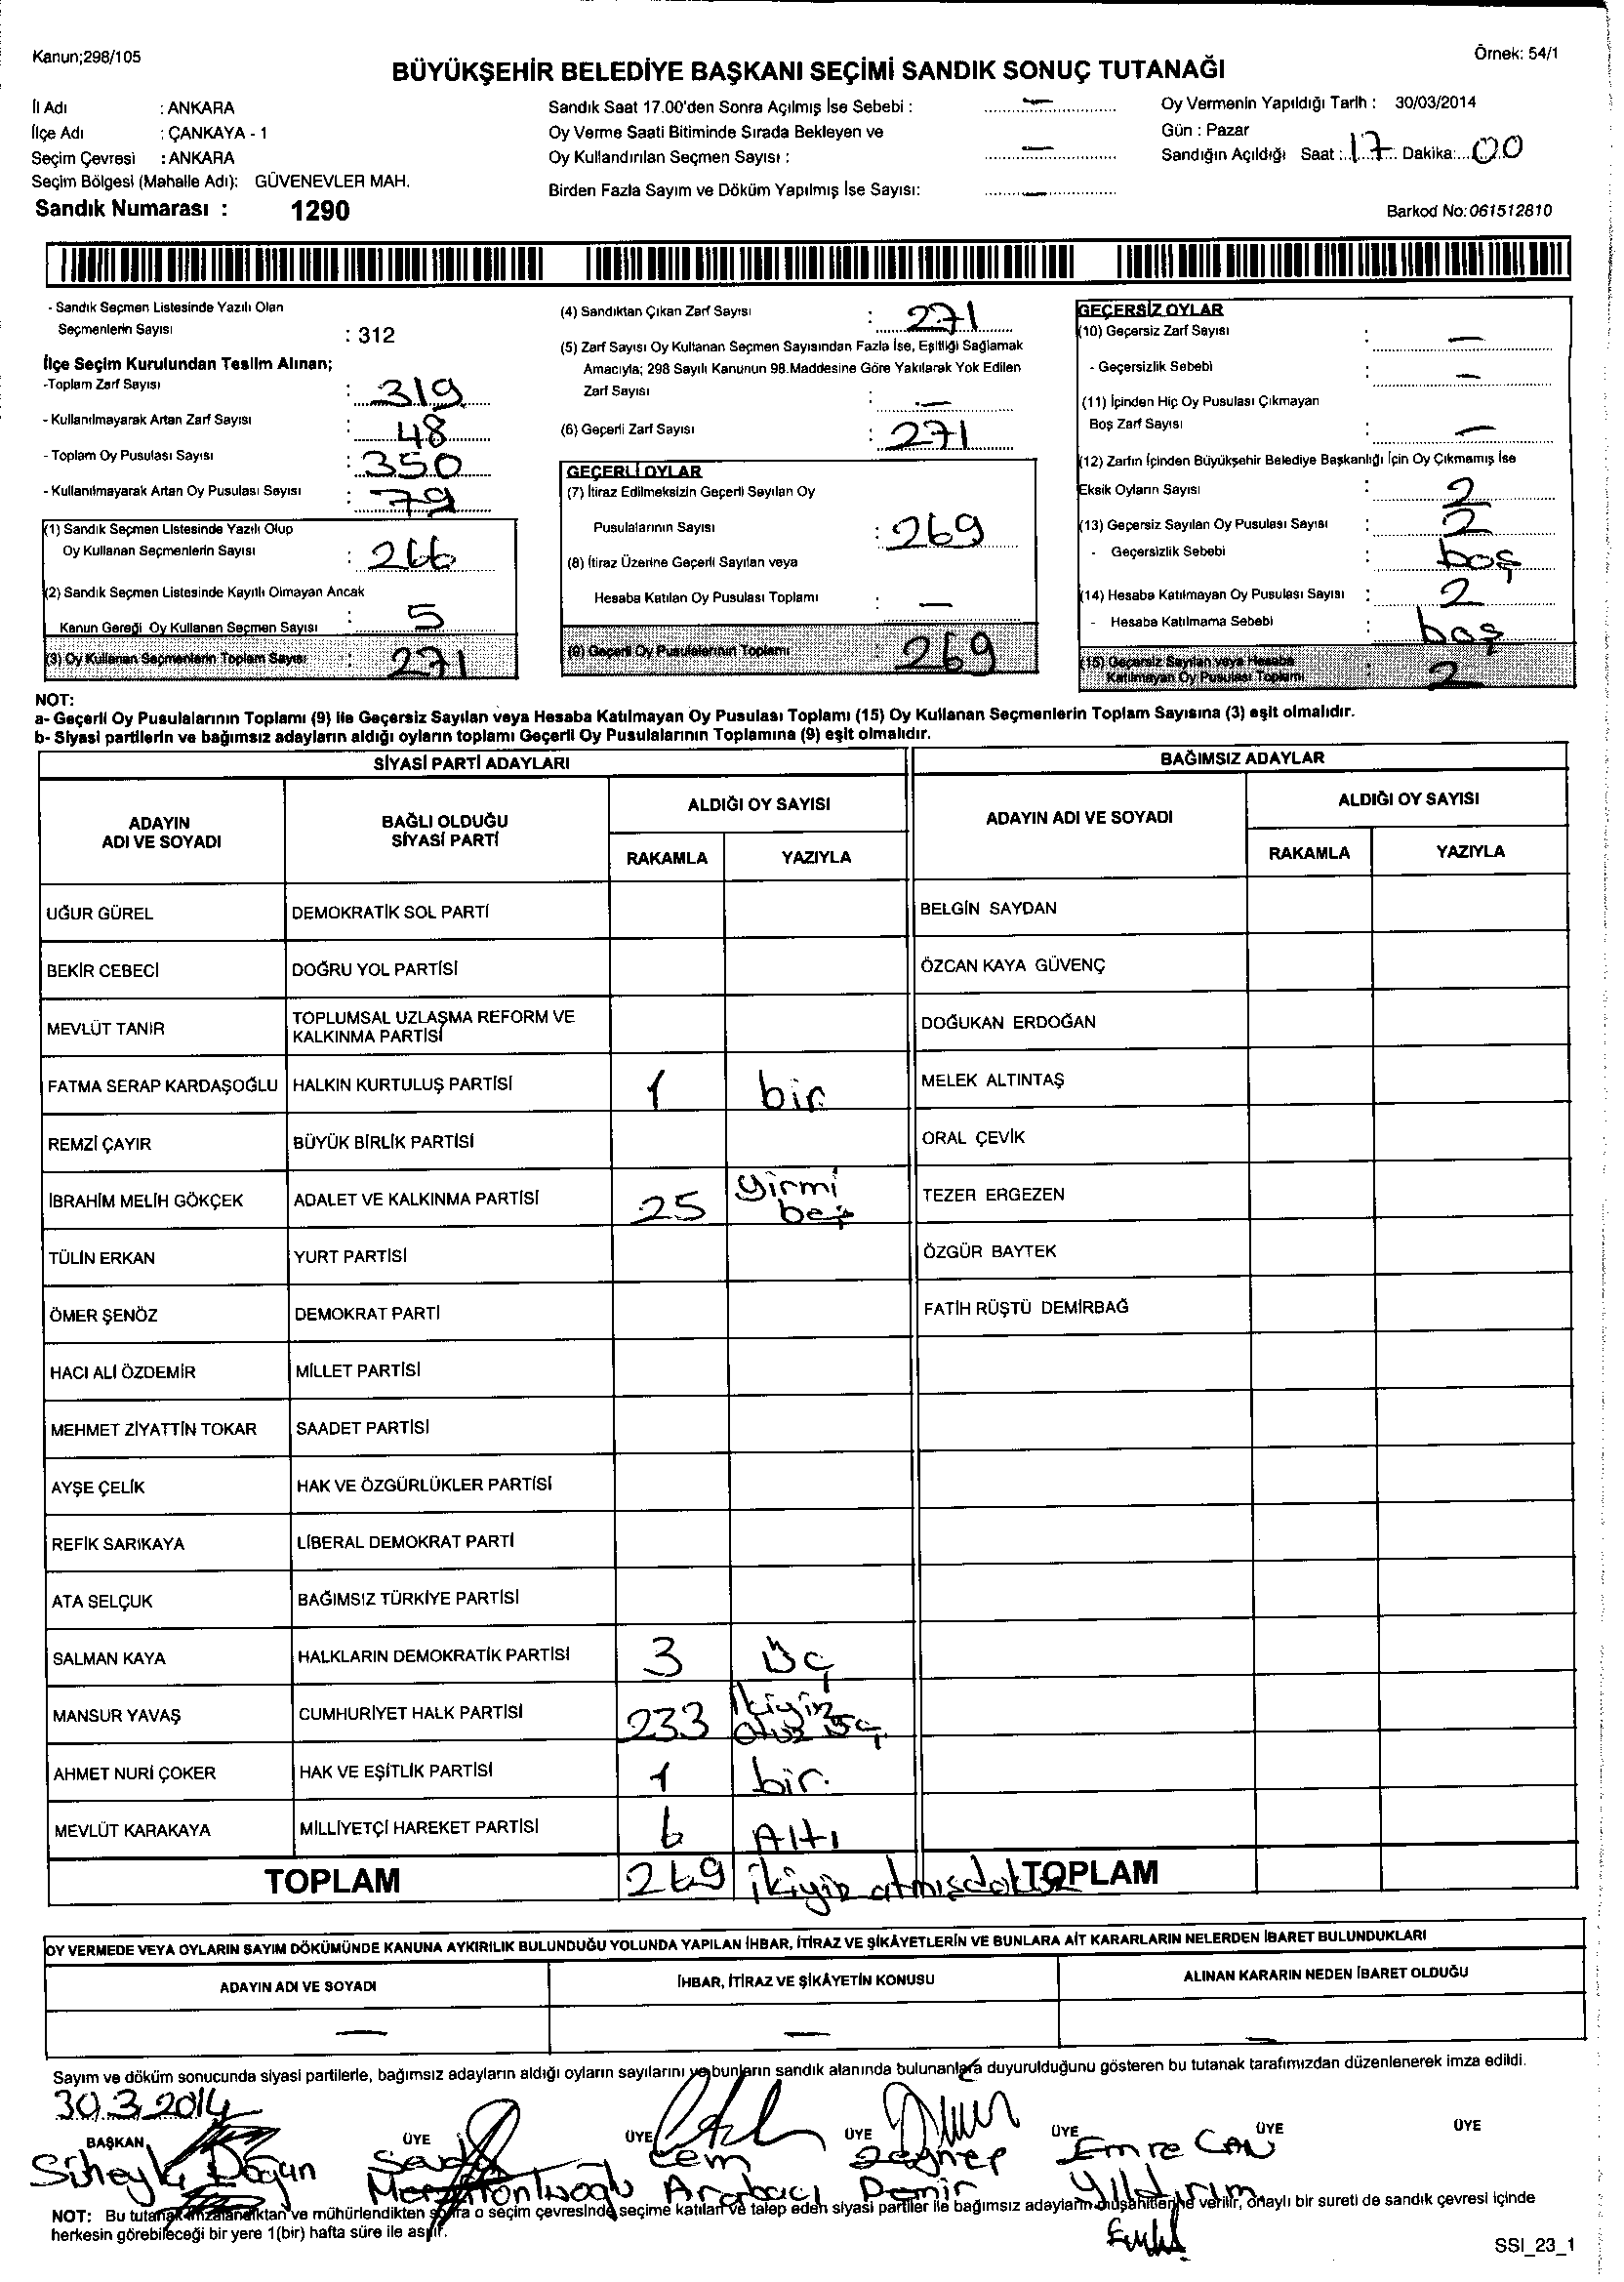 Kanun;298/105
Örnek: 54/1
BÜYÜKŞEHİR BELEDİYE BAŞKANI SEÇİMİ SANDIK SONUÇ TUTANAĞI
İl Adı : ANKARA
İlçe Adı : ÇANKAYA - 1
Seçim Çevresi : ANKARA
Seçim Bölgesi (Mahalle Adı): GÜVENEVLER MAH.
Sandık Numarası : 1290
Sandık Saat 17.00'den Sonra Açılmış İse Sebebi : —
Oy Verme Saati Bitiminde Sırada Bekleyen ve
Oy Kullandırılan Seçmen Sayısı : —
Birden Fazla Sayım ve Döküm Yapılmış İse Sayısı: —
Oy Vermenin Yapıldığı Tarih : 30/03/2014
Gün : Pazar
Sandığın Açıldığı Saat : 17 Dakika: 00
Barkod No:061512810
- Sandık Seçmen Listesinde Yazılı Olan
Seçmenlerin Sayısı : 312
İlçe Seçim Kurulundan Teslim Alınan;
-Toplam Zarf Sayısı : 319
- Kullanılmayarak Artan Zarf Sayısı : 48
- Toplam Oy Pusulası Sayısı : 350
- Kullanılmayarak Artan Oy Pusulası Sayısı : 79
(1) Sandık Seçmen Listesinde Yazılı Olup
Oy Kullanan Seçmenlerin Sayısı : 266
(2) Sandık Seçmen Listesinde Kayıtlı Olmayan Ancak
Kanun Gereği Oy Kullanan Seçmen Sayısı : 5
(3) Oy Kullanan Seçmenlerin Toplam Sayısı : 271
(4) Sandıktan Çıkan Zarf Sayısı : 271
(5) Zarf Sayısı Oy Kullanan Seçmen Sayısından Fazla İse, Eşitliği Sağlamak
Amacıyla; 298 Sayılı Kanunun 98.Maddesine Göre Yakılarak Yok Edilen
Zarf Sayısı : —
(6) Geçerli Zarf Sayısı : 271
GEÇERLİ OYLAR
(7) İtiraz Edilmeksizin Geçerli Sayılan Oy
Pusulalarının Sayısı : 269
(8) İtiraz Üzerine Geçerli Sayılan veya
Hesaba Katılan Oy Pusulası Toplamı : —
(9) Geçerli Oy Pusulalarının Toplamı : 269
GEÇERSİZ OYLAR
(10) Geçersiz Zarf Sayısı : —
- Geçersizlik Sebebi : —
(11) İçinden Hiç Oy Pusulası Çıkmayan
Boş Zarf Sayısı : —
(12) Zarfın İçinden Büyükşehir Belediye Başkanlığı İçin Oy Çıkmamış İse
Eksik Oyların Sayısı : 2
(13) Geçersiz Sayılan Oy Pusulası Sayısı : 2
- Geçersizlik Sebebi : boş
(14) Hesaba Katılmayan Oy Pusulası Sayısı : 2
- Hesaba Katılmama Sebebi : boş
(15) Geçersiz Sayılan veya Hesaba
Katılmayan Oy Pusulası Toplamı : 2
NOT:
a- Geçerli Oy Pusulalarının Toplamı (9) ile Geçersiz Sayılan veya Hesaba Katılmayan Oy Pusulası Toplamı (15) Oy Kullanan Seçmenlerin Toplam Sayısına (3) eşit olmalıdır.
b- Siyasi partilerin ve bağımsız adayların aldığı oyların toplamı Geçerli Oy Pusulalarının Toplamına (9) eşit olmalıdır.
SİYASİ PARTİ ADAYLARI
BAĞIMSIZ ADAYLAR
ADAYIN
ADI VE SOYADI
BAĞLI OLDUĞU
SİYASİ PARTİ
ALDIĞI OY SAYISI
RAKAMLA YAZIYLA
ADAYIN ADI VE SOYADI
ALDIĞI OY SAYISI
RAKAMLA YAZIYLA
UĞUR GÜREL DEMOKRATİK SOL PARTİ BELGİN SAYDAN
BEKİR CEBECİ DOĞRU YOL PARTİSİ ÖZCAN KAYA GÜVENÇ
MEVLÜT TANIR TOPLUMSAL UZLAŞMA REFORM VE
KALKINMA PARTİSİ DOĞUKAN ERDOĞAN
FATMA SERAP KARDAŞOĞLU HALKIN KURTULUŞ PARTİSİ 1 bir MELEK ALTINTAŞ
REMZİ ÇAYIR BÜYÜK BİRLİK PARTİSİ ORAL ÇEVİK
İBRAHİM MELİH GÖKÇEK ADALET VE KALKINMA PARTİSİ 25 yirmi beş TEZER ERGEZEN
TÜLİN ERKAN YURT PARTİSİ ÖZGÜR BAYTEK
ÖMER ŞENÖZ DEMOKRAT PARTİ FATİH RÜŞTÜ DEMİRBAĞ
HACI ALİ ÖZDEMİR MİLLET PARTİSİ
MEHMET ZİYATTİN TOKAR SAADET PARTİSİ
AYŞE ÇELİK HAK VE ÖZGÜRLÜKLER PARTİSİ
REFİK SARIKAYA LİBERAL DEMOKRAT PARTİ
ATA SELÇUK BAĞIMSIZ TÜRKİYE PARTİSİ
SALMAN KAYA HALKLARIN DEMOKRATİK PARTİSİ 3 üç
MANSUR YAVAŞ CUMHURİYET HALK PARTİSİ 233 ikiyüz otuz üç
AHMET NURİ ÇOKER HAK VE EŞİTLİK PARTİSİ 1 bir
MEVLÜT KARAKAYA MİLLİYETÇİ HAREKET PARTİSİ 6 Altı
TOPLAM 269 ikiyüz atmışdokuz TOPLAM
OY VERMEDE VEYA OYLARIN SAYIM DÖKÜMÜNDE KANUNA AYKIRILIK BULUNDUĞU YOLUNDA YAPILAN İHBAR, İTİRAZ VE ŞİKÂYETLERİN VE BUNLARA AİT KARARLARIN NELERDEN İBARET BULUNDUKLARI
ADAYIN ADI VE SOYADI İHBAR, İTİRAZ VE ŞİKÂYETİN KONUSU ALINAN KARARIN NEDEN İBARET OLDUĞU
— — —
Sayım ve döküm sonucunda siyasi partilerle, bağımsız adayların aldığı oyların sayılarını ve bunların sandık alanında bulunanlara duyurulduğunu gösteren bu tutanak tarafımızdan düzenlenerek imza edildi.
30.3.2014
BAŞKAN ÜYE ÜYE ÜYE ÜYE ÜYE ÜYE
Süheyla Doğan
Cem Arabacı
Zeynep Demir
Emre CAN Yıldırım
NOT: Bu tutanak imzalandıktan ve mühürlendikten sonra o seçim çevresinde seçime katılan ve talep eden siyasi partiler ile bağımsız adayların müşahitlerine verilir, onaylı bir sureti de sandık çevresi içinde
herkesin görebileceği bir yere 1(bir) hafta süre ile asılır.
SSI_23_1